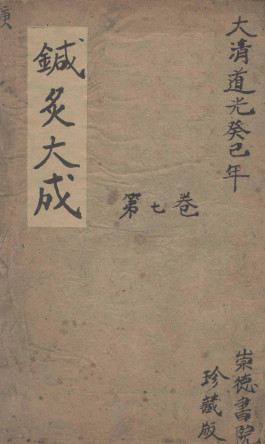 大清道光癸巳年
崇德書院
珍藏版
第七卷
鍼灸大成